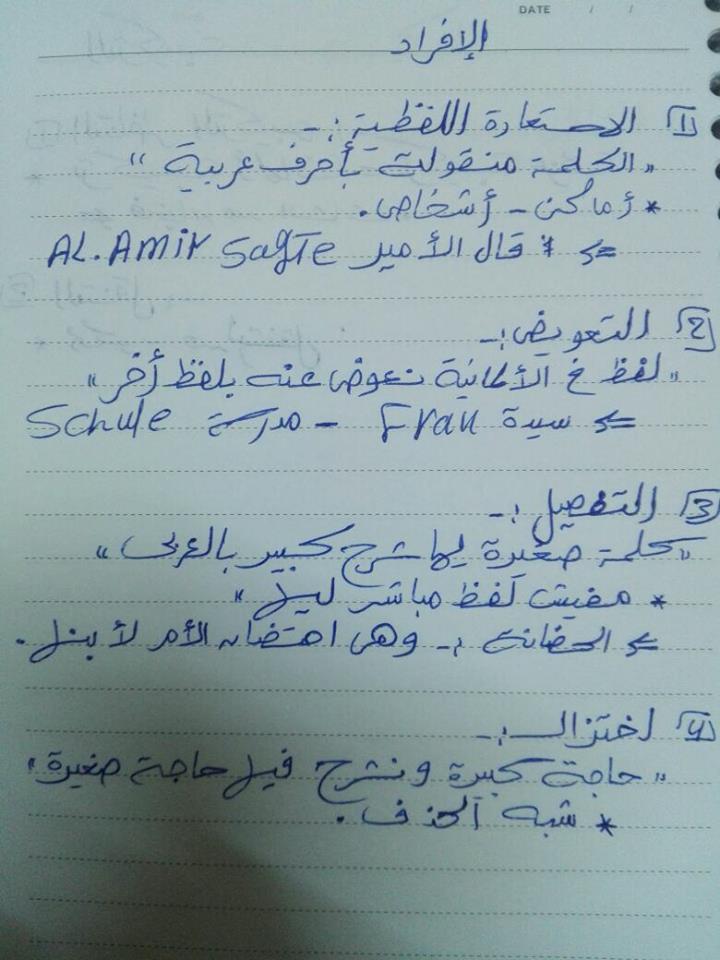 DATE / /
الإفراد
1 الاستعارة اللفظية :-
"الكلمة منقولة بأحرف عربية"
* أماكن - أشخاص.
<= * قال الأمير AL.AMir Sagte
2 التعويض :-
"لفظ في الألمانية نعوض عنه بلفظ أخر"
<= سيدة Frau - مدرسة Schule
3 التفصيل :-
"كلمة صغيرة ليها شرح كبير بالعربى"
* مفيش لفظ مباشر ليها "
<= الحضانة :- وهى احتضان الأم لأبنها.
4 اختزال :-
"حاجة كبيرة ونشرح فيها حاجة صغيرة"
* شبه الحذف.